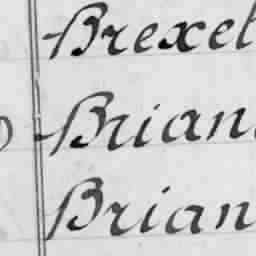 Brexel
Brian
Brian